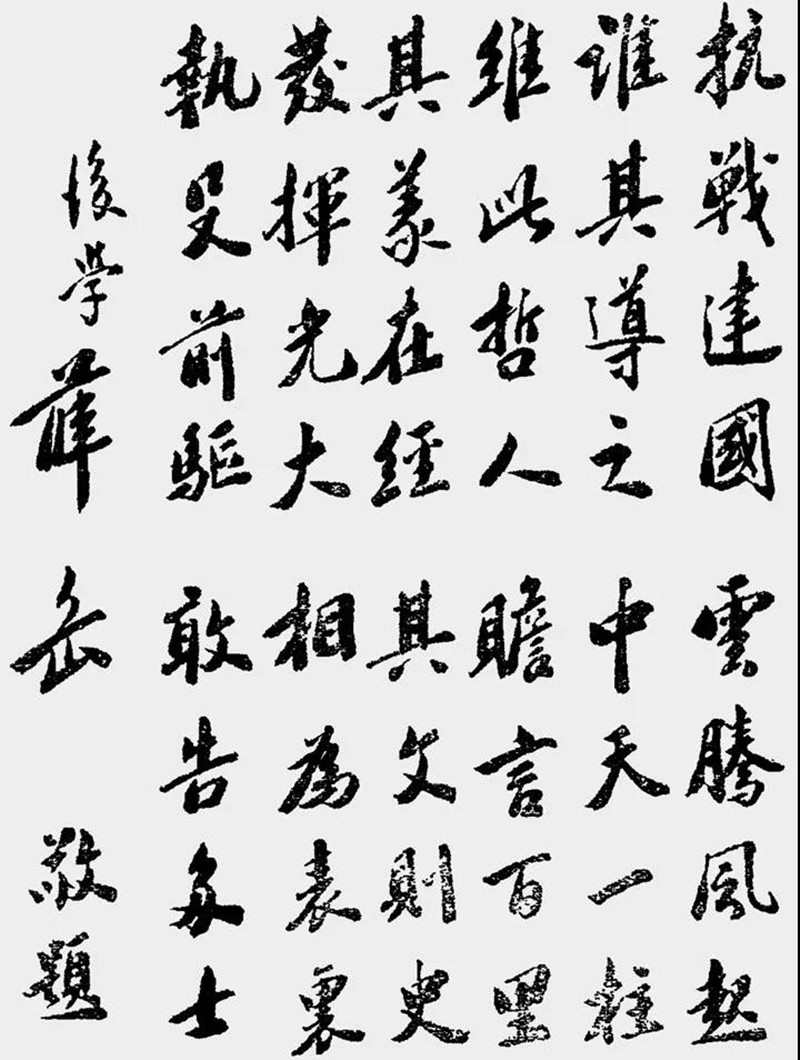 抗戰建國雲騰風起
誰其導之中天一柱
維此哲人瞻言百里
其義在經其文則史
發揮光大相為表裏
執殳前驅敢告多士
後学薛岳敬題